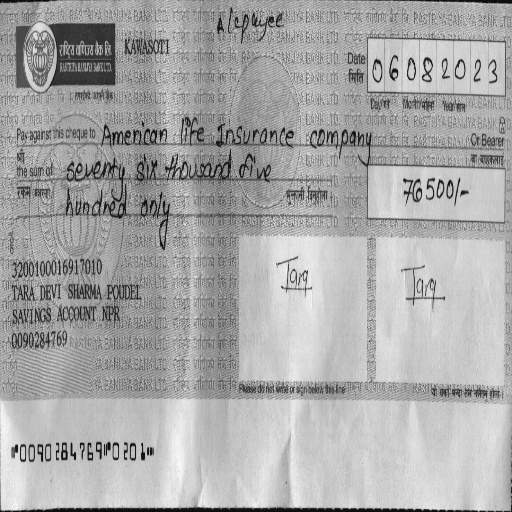 A/c payee
राष्ट्रिय वाणिज्य बैंक लि.
RASTRIYA BANIJYA BANK LTD.
KAWASOTI
Date
मिति
06082023
Day/गते Month/महिना Year/साल
Pay against this cheque to American life Insurance company
Or Bearer
श्री
वा वाहकलाई
the sum of seventy six thousand five
रकम
hundred only
76500/-
3200100016917010
TARA DEVI SHARMA POUDEL
SAVINGS ACCOUNT NPR
0090284769
Tara
Tara
Please do not write or sign below this line
⑈0090284769⑈0201⑈